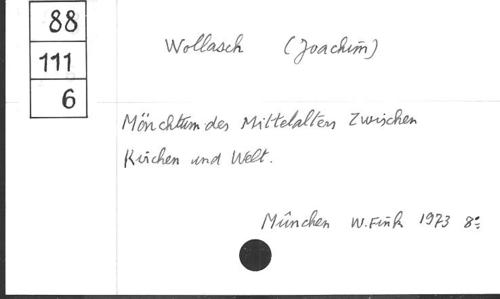 88
111
6
Wollasch (Joachim)
Mönchtum des Mittelalters Zwischen
Kirchen und Welt.
München W. Fink 1973 8º